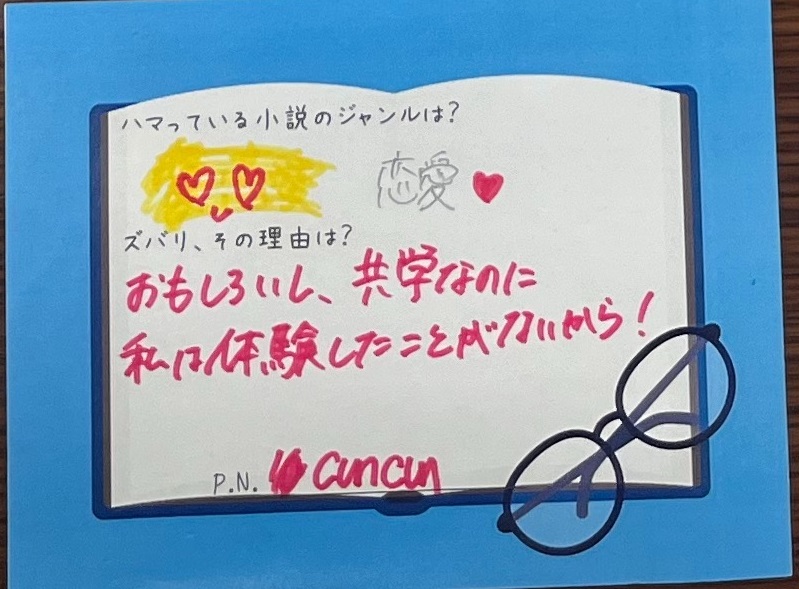 ハマっている小説のジャンルは?
恋愛
ズバリ、その理由は?
おもしろいし、共学なのに
私は体験したことがないから!
P.N. cuncun